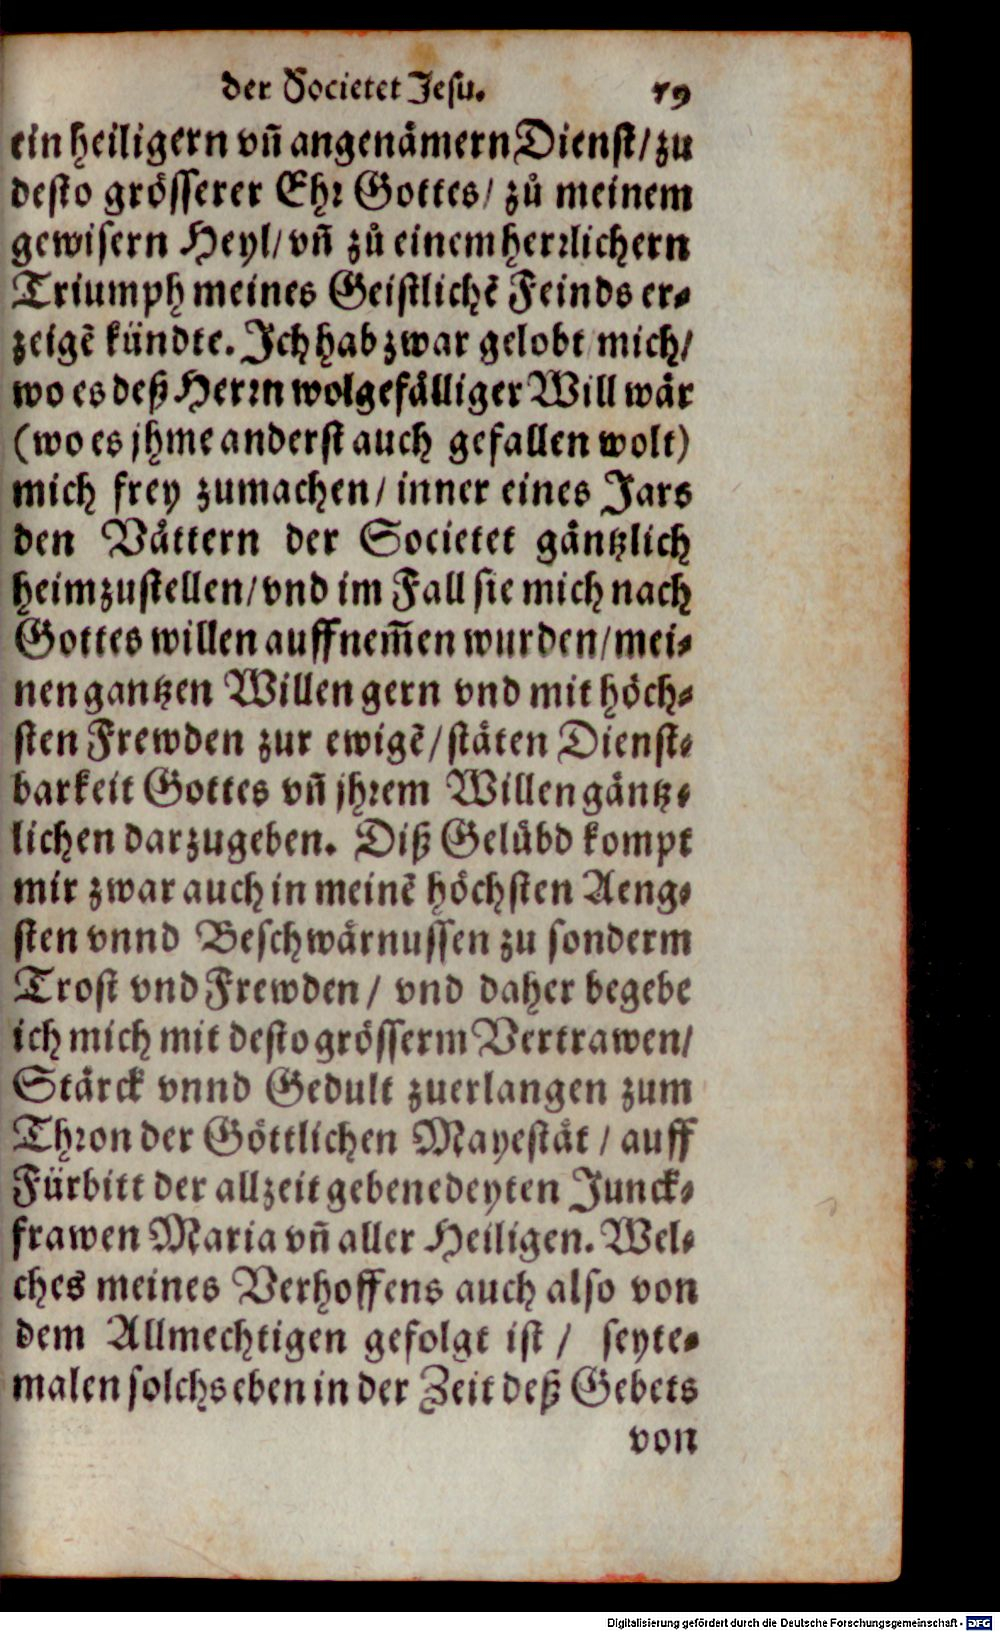 der Societet Jesu. 59
ein heiligern vñ angenämern Dienst/ zu
desto grösserer Ehr Gottes/ zů meinem
gewisern Heyl/ vñ zů einem herrlichern
Triumph meines Geistlichẽ Feinds er-
zeigẽ kündte. Ich hab zwar gelobt mich/
wo es deß Herrn wolgefälliger Will wär
(wo es jhme anderst auch gefallen wolt)
mich frey zumachen/ inner eines Jars
den Vättern der Societet gäntzlich
heimzustellen/ vnd im Fall sie mich nach
Gottes willen auffnem̃en wurden/ mei-
nen gantzen Willen gern vnd mit höch-
sten Frewden zur ewigẽ/ stäten Dienst-
barkeit Gottes vñ jhrem Willen gäntz-
lichen darzugeben. Diß Gelübd kompt
mir zwar auch in meinẽ höchsten Aeng-
sten vnnd Beschwärnussen zu sonderm
Trost vnd Frewden/ vnd daher begebe
ich mich mit desto grösserm Vertrawen/
Stärck vnnd Gedult zuerlangen zum
Thron der Göttlichen Mayestät/ auff
Fürbitt der allzeit gebenedeyten Junck-
frawen Maria vñ aller Heiligen. Wel-
ches meines Verhoffens auch also von
dem Allmechtigen gefolgt ist/ seyte-
malen solchs eben in der Zeit deß Gebets
von
Digitalisierung gefördert durch die Deutsche Forschungsgemeinschaft - DFG